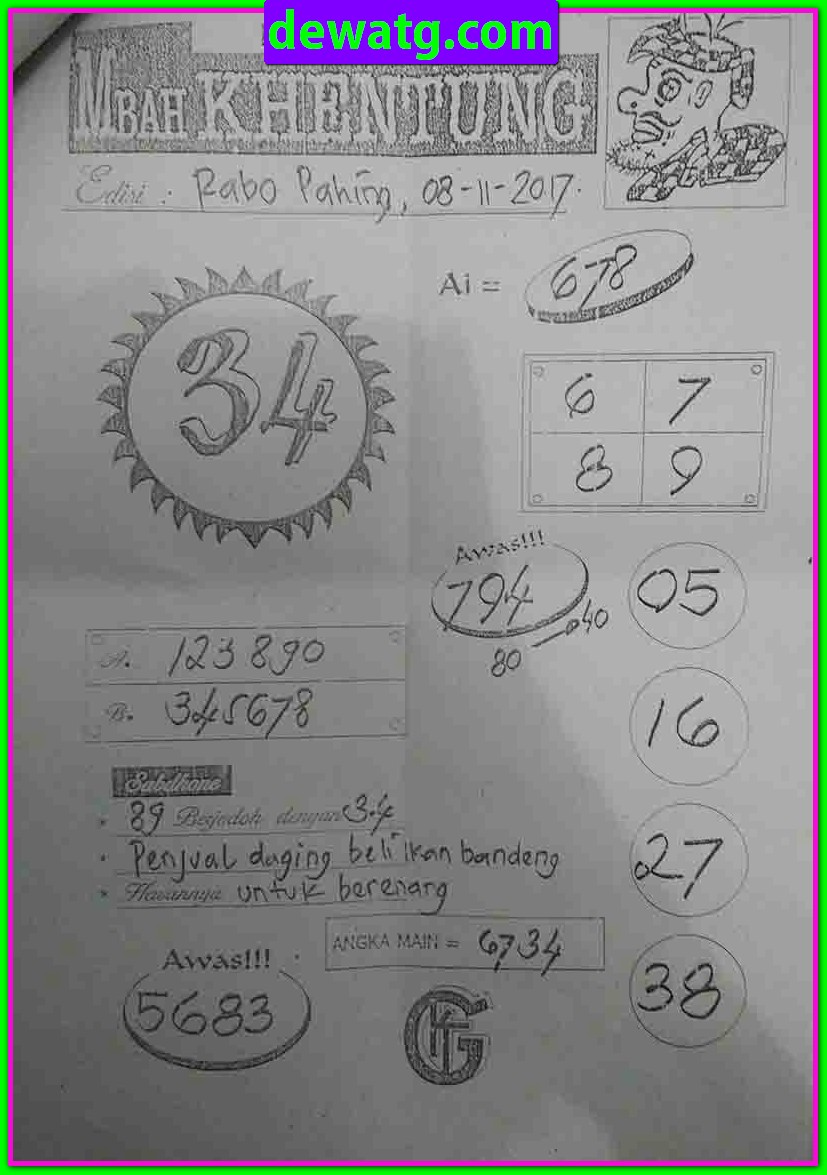 dewatg.com
MBAH KHENTUNG
Edisi : Rabo Pahing, 08-11-2017.
Ai = 678
34
6 7
8 9
Awas!!!
794
80 40
05
A. 123890
B. 345678
16
Sabdhone
* 89 Berjodoh dengan 34
• Penjual daging beli ikan bandeng
* Hawannya untuk berenang
27
ANGKA MAIN = 6734
Awas!!!
5683
38